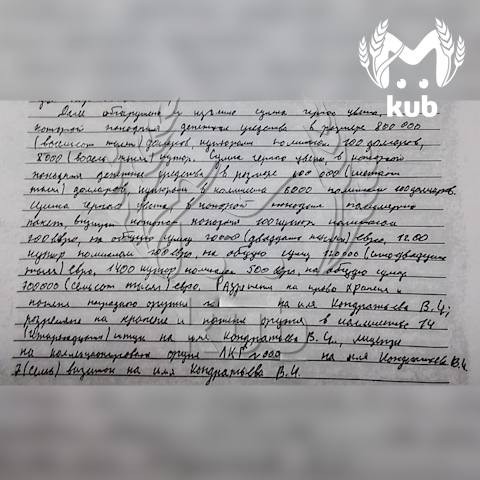 kub
Далее обнаружена и изъята сумка черного цвета, в
которой находятся денежные средства в размере 800 000
(восемьсот тысяч) долларов, купюрами номиналом 100 долларов,
8000 (восемь тысяч) купюр. Сумка черного цвета, в которой
находятся денежные средства в размере 600 000 (шестьсот
тысяч) долларов, купюрами в количестве 6000 номиналом 100 долларов.
Сумка черного цвета в которой находится
пакет, внутри которого находятся 100 купюр номиналом
200 евро, на общую сумму 20000 (двадцать тысяч) евро, 1200
купюр номиналом 100 евро, на общую сумму 120000 (сто двадцать
тысяч) евро, 1400 купюр номиналом 500 евро на общую сумму
700000 (семьсот тысяч) евро. Разрешение на право хранения и
ношения наградного оружия на имя Кондратьева В.Ч.;
разрешение на хранение и ношение оружия в количестве 14
(четырнадцать) штук на имя Кондратьева В.Ч., лицензия
на коллекционирование оружия ЛКГ № 000 на имя Кондратьева В.Ч.
7 (семь) визиток на имя Кондратьева В.Ч.